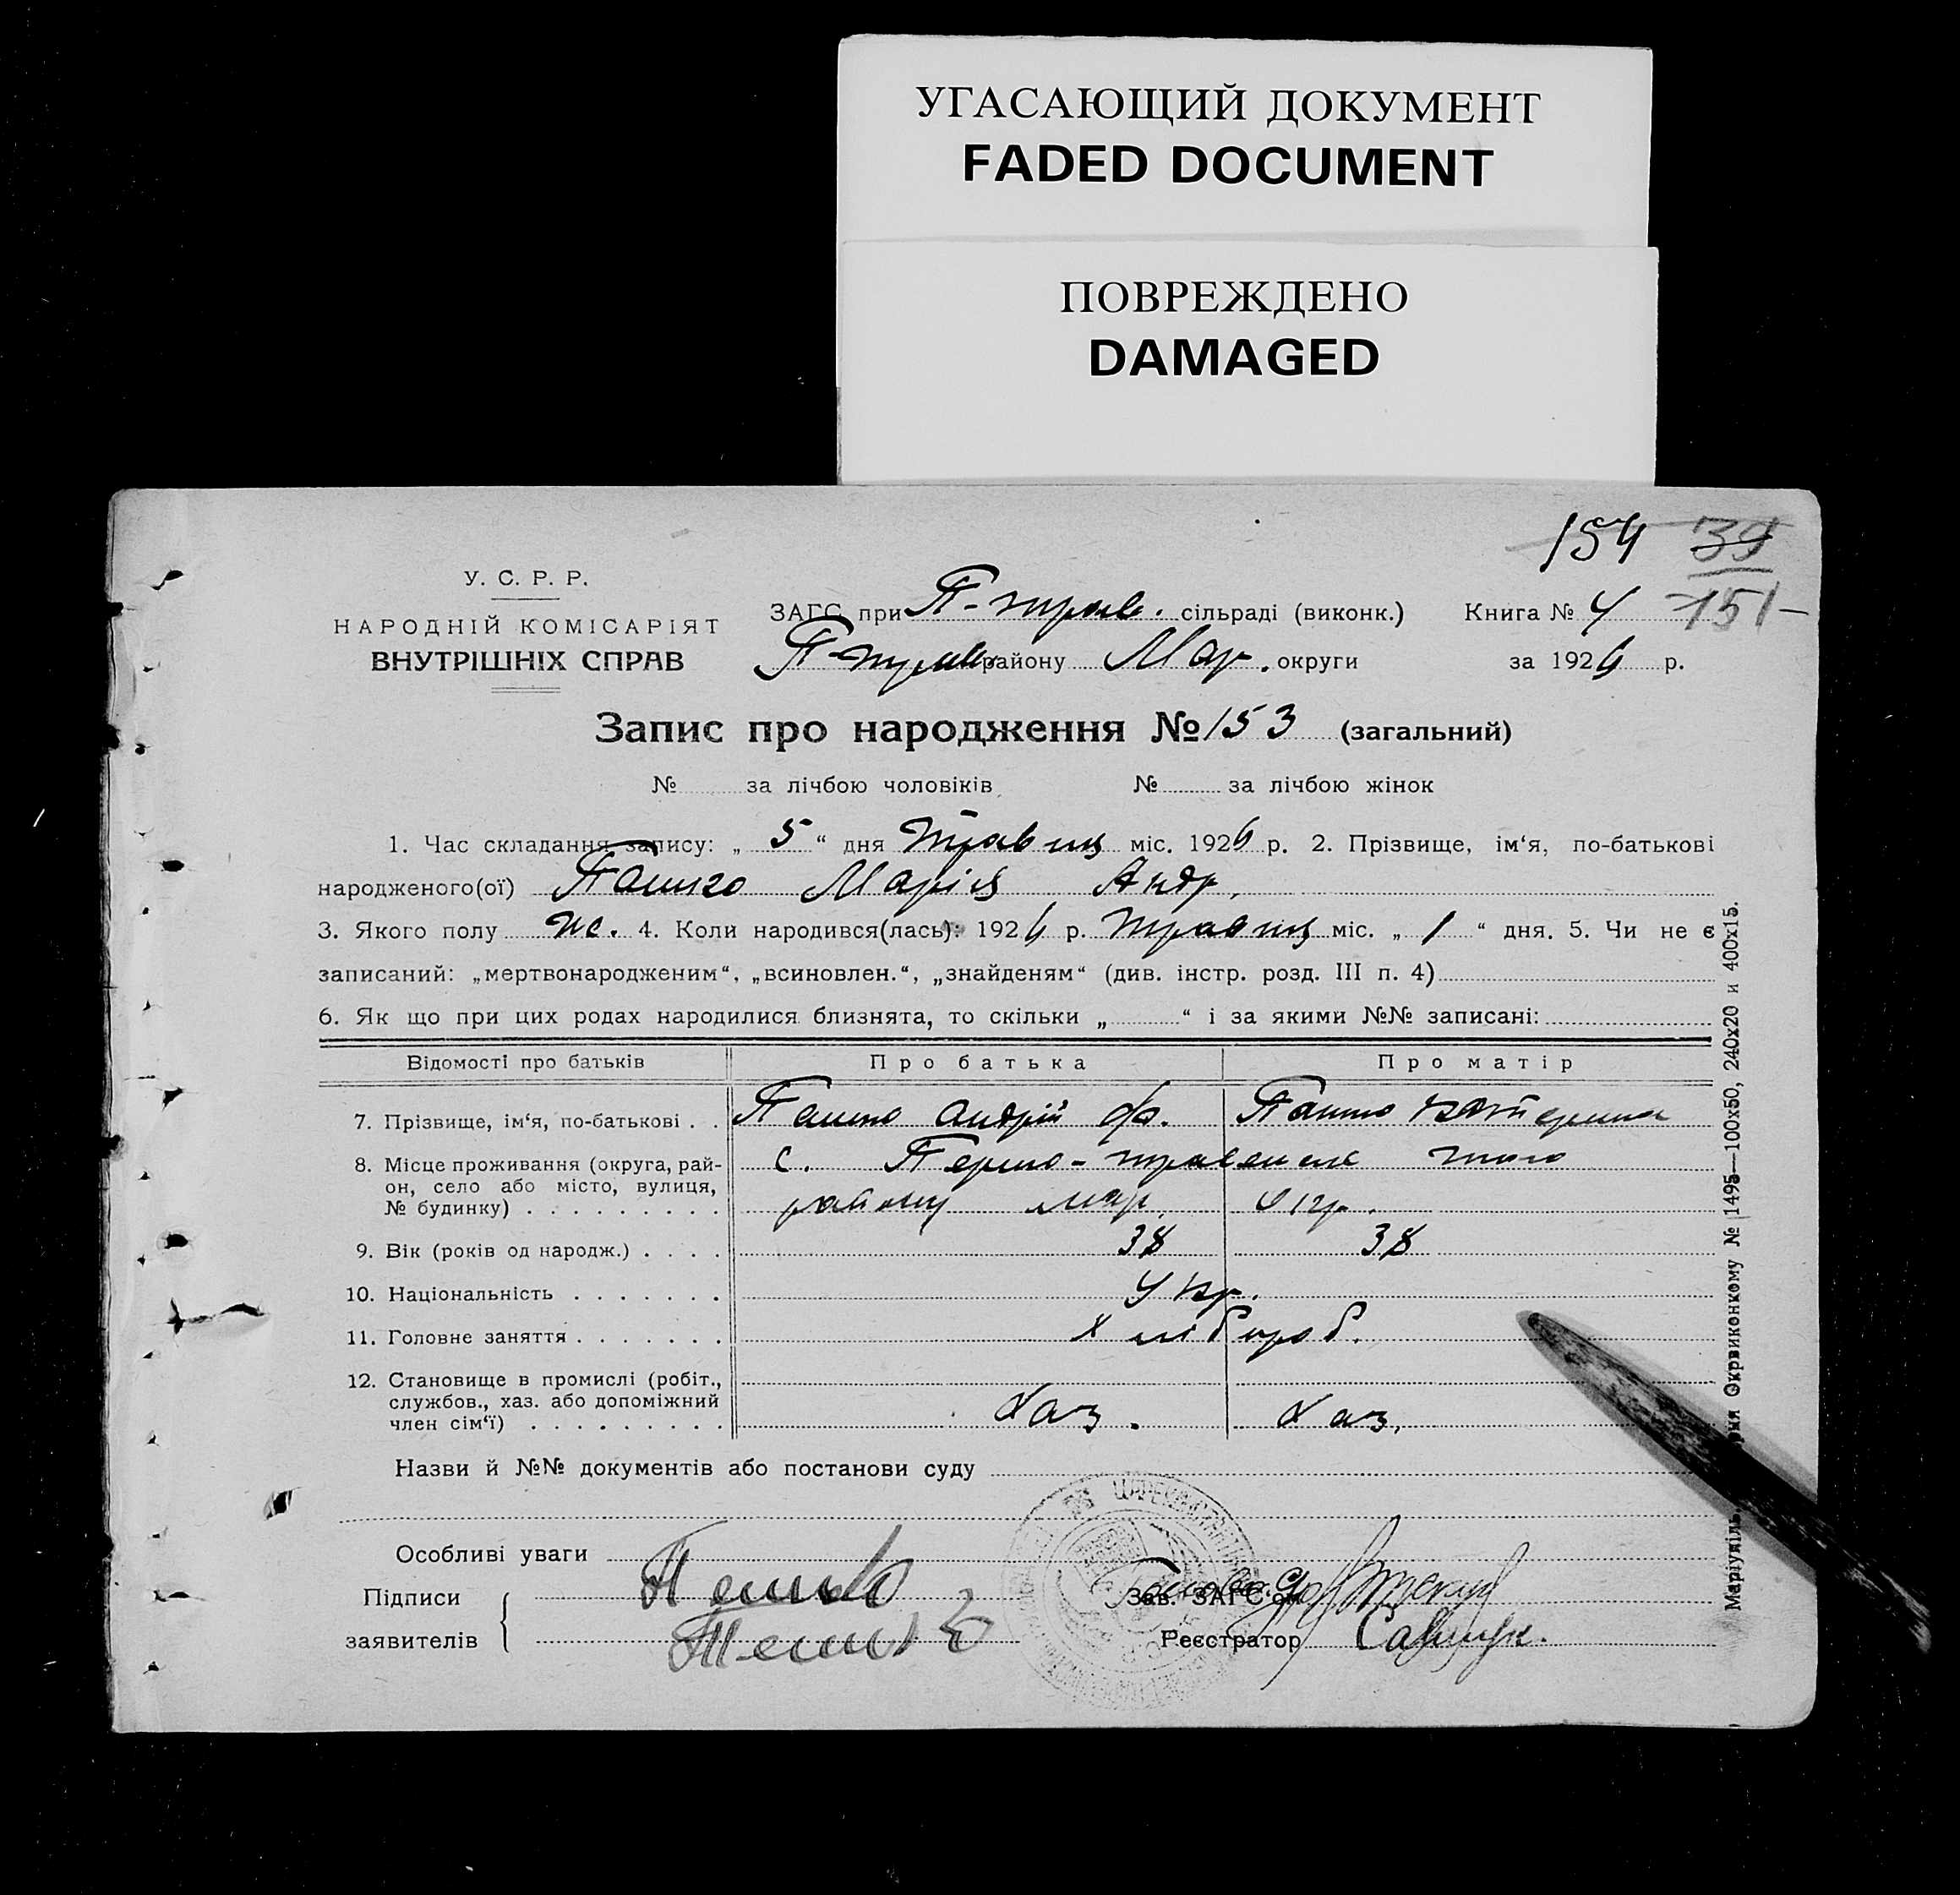 УГАСАЮЩИЙ ДОКУМЕНТ
FADED DOCUMENT
ПОВРЕЖДЕНО
DAMAGED
154 39
151
У. С. Р. Р.
НАРОДНІЙ КОМІСАРІЯТ
ВНУТРІШНІХ СПРАВ
ЗАГС при П-трав. сільраді (виконк.) Книга № 4
П-трав. району Мар. округи за 1926 р.
Запис про народження № 153 (загальний)
№ за лічбою чоловіків № за лічбою жінок
1. Час складання запису: „ 5 “ дня травня міс. 1926 р. 2. Прізвище, ім‘я, по-батькові
народженого(ої) Пашко Марія Андр.
3. Якого полу ж. 4. Коли народився(лась): 1926 р. травня міс. „ 1 “ дня. 5. Чи не є
записаний: „мертвонародженим“, „всиновлен.“, „знайденям“ (див. інстр. розд. III п. 4)
6. Як що при цих родах народилися близнята, то скільки „ “ і за якими №№ записані:
Відомості про батьків Про батька Про матір
7. Прізвище, ім‘я, по-батькові . . Пашко Андрій Пашко Катерина
8. Місце проживання (округа, рай-
он, село або місто, вулиця,
№ будинку) . . . . . . . . .
с. Першо-травенське того
району Мар. Окр.
9. Вік (років од народж.) . . . . 38 38
10. Національність . . . . . . . Укр.
11. Головне заняття . . . . . . . Хлібороб.
12. Становище в промислі (робіт.,
службов., хаз. або допоміжний
член сім‘ї) . . . . . . . . . Хаз. Хаз.
Назви й №№ документів або постанови суду
Особливі уваги
Підписи Пашко Зав. ЗАГС‘ом
заявителів Реєстратор
Окрвиконкому № 1495—100х50, 240х20 и 400х15.